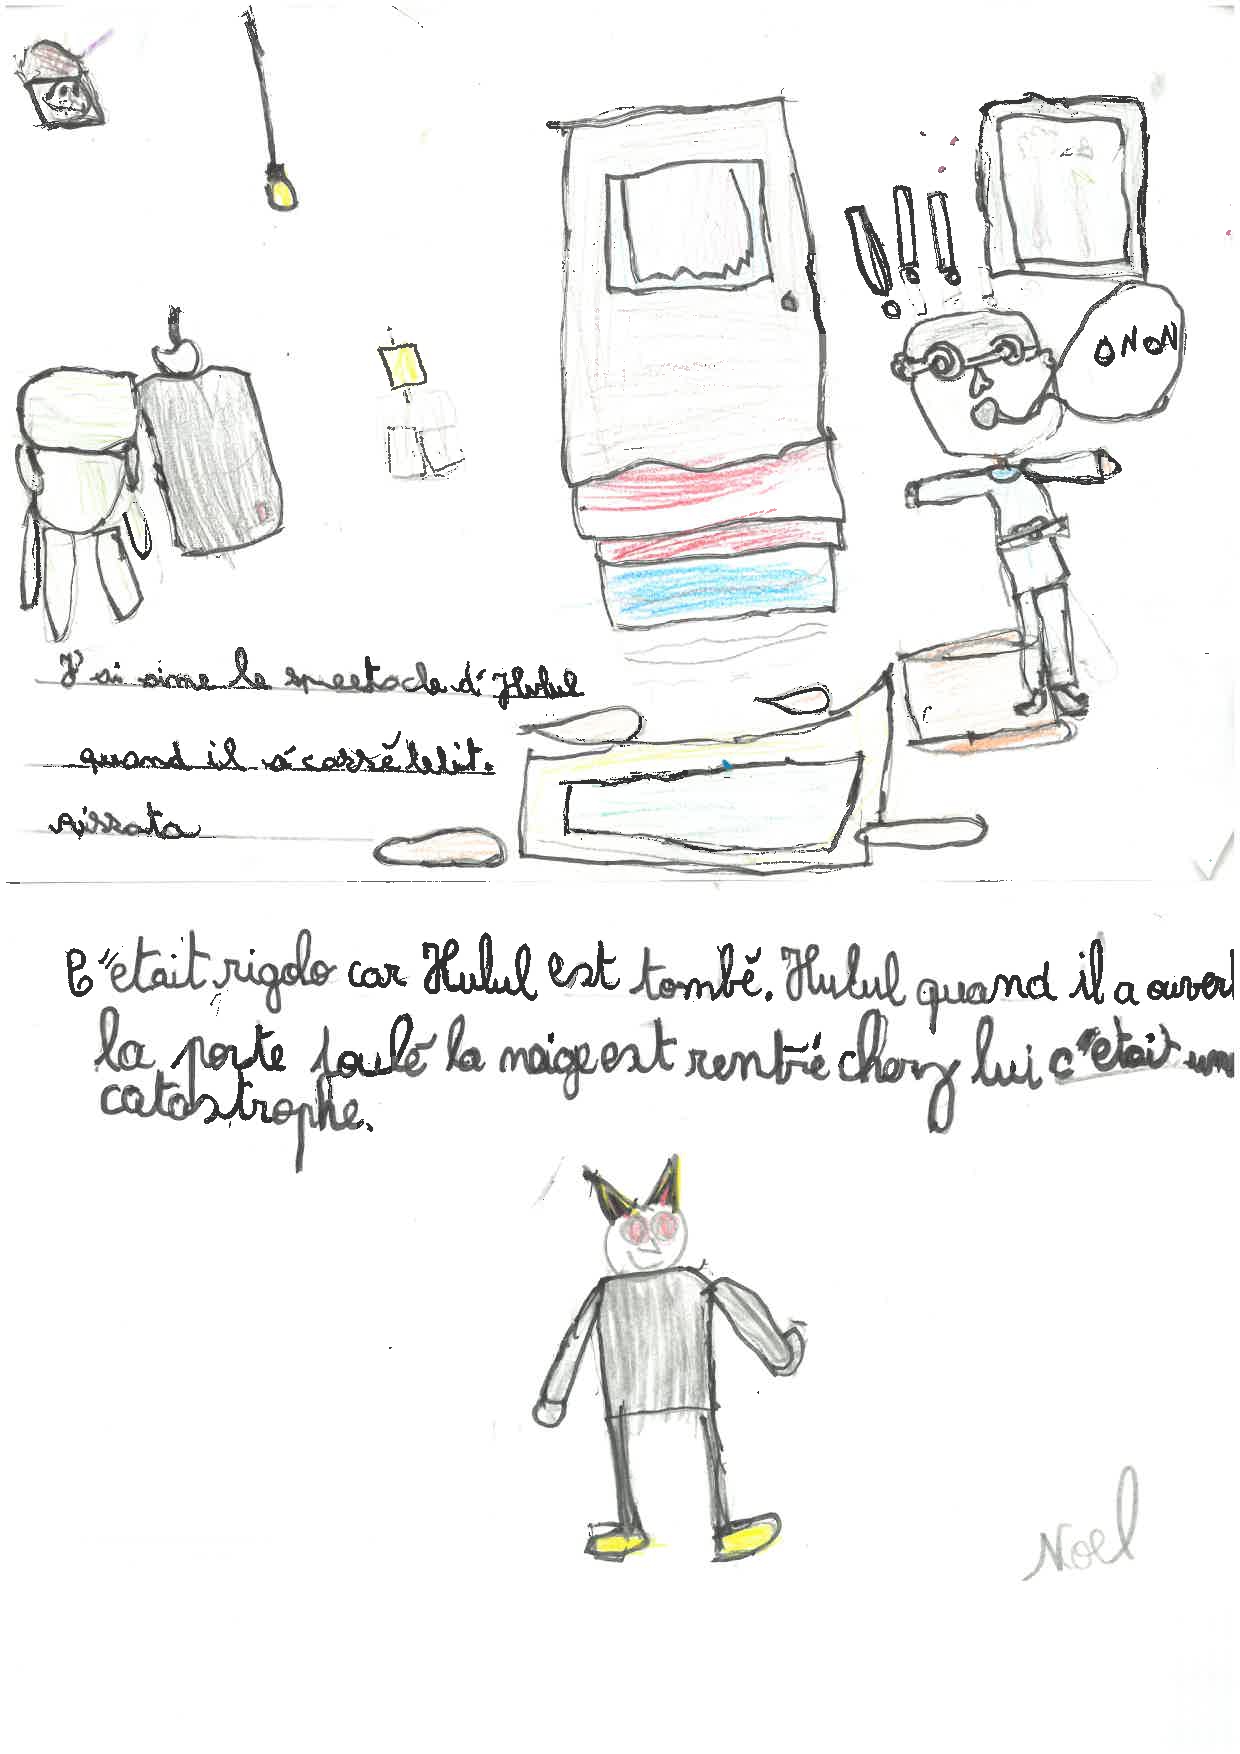 ONON
J'ai aimé le spectacle d'Hulul
quand il a cassé le lit.
Aissata
C'était rigolo car Hulul est tombé. Hulul quand il a ouvert
la porte la neige est rentré chez lui c'était une
catastrophe.
Noel